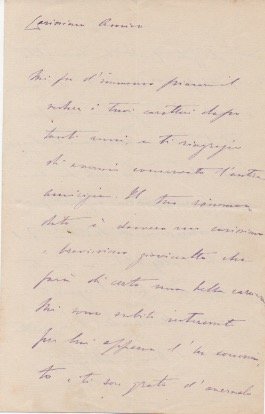 Carissimo Amico
Mi fu d'immenso piacere il
vedere i tuoi caratteri dopo
tanti anni, e ti ringrazio
di avermi conservata l'antica
amicizia. Il tuo raccoman
dato è davvero un carissimo
e bravissimo giovinotto che
farà di certo una bella carriera
Mi sono subito interessato
per lui appena l'ho conosciu
to, e ti son grato d'avermelo